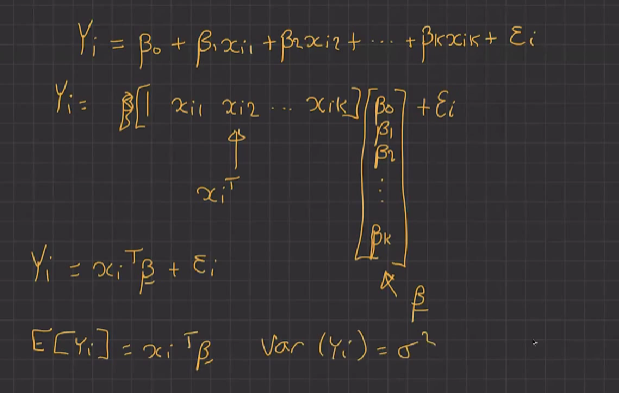 Yᵢ = β₀ + β₁xᵢ₁ + β₂xᵢ₂ + ⋯ + βₖxᵢₖ + εᵢ
Yᵢ = [1 xᵢ₁ xᵢ₂ ⋯ xᵢₖ] [β₀ β₁ β₂ ⋮ βₖ] + εᵢ
xᵢᵀ
Yᵢ = xᵢᵀβ̲ + εᵢ
β̲
E[Yᵢ] = xᵢᵀβ̲ Var (Yᵢ) = σ²